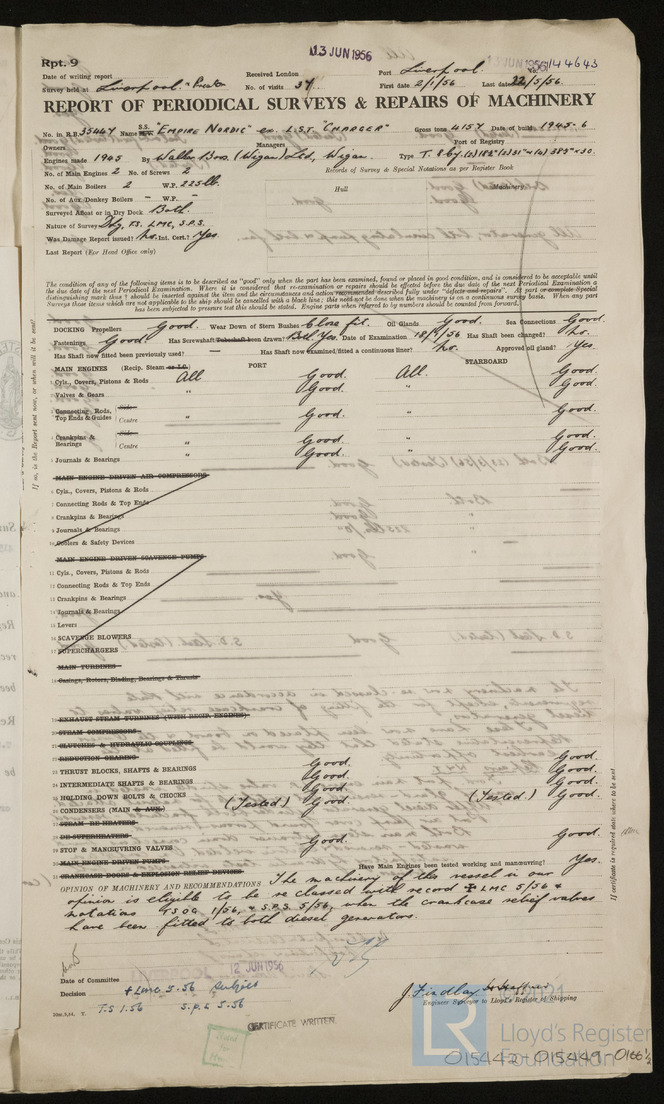 Rpt. 9
13 JUN 1956
Date of writing report Received London Port Liverpool.
Survey held at Liverpool No. of visits 37 First date 2/1/56 Last date 22/5/56.
REPORT OF PERIODICAL SURVEYS & REPAIRS OF MACHINERY
No. in R.B. 35447 Name S.S. "EMPIRE NORDIC" ex L.S.T. "CHARGER" Gross tons 4157 Date of build 1945-6
Owners Managers Port of Registry
Engines made 1945 By Walker Bros (Wigan) Ltd, Wigan. Type T. 8cy.
No. of Main Engines 2 No. of Screws 2 Records of Survey & Special Notations as per Register Book
No. of Main Boilers 2 W.P. 225 lb. Hull Machinery
No. of Aux. Donkey Boilers – W.P. –
Surveyed Afloat or in Dry Dock Both.
Nature of Survey Dkg, T.S. LMC, S.P.S.
Was Damage Report issued? No. Int. Cert.? Yes.
Last Report (For Head Office only)
The condition of any of the following items is to be described as "good" only when the part has been examined, found or placed in good condition, and is considered to be acceptable until
the due date of the next Periodical Examination. Where it is considered that re-examination or repairs should be effected before the due date of the next Periodical Examination a
DOCKING Propellers Good. Wear Down of Stern Bushes Close fit. Oil Glands Good. Sea Connections Good.
Fastenings Good Has Screwshaft Tubeshaft been drawn? Both Yes. Date of Examination 18/1/56 Has Shaft been changed? No.
Has Shaft now fitted been previously used? — Has Shaft now examined/fitted a continuous liner? No. Approved oil gland? Yes.
MAIN ENGINES (Recip. Steam or I.C.) PORT STARBOARD
Cyls., Covers, Pistons & Rods All Good. All. Good.
Valves & Gears " Good. " Good.
Connecting Rods, Top Ends & Guides Side Centre " Good. " Good.
Crankpins & Bearings Side Centre " Good. " Good.
Journals & Bearings " Good. " Good.
MAIN ENGINE DRIVEN AIR COMPRESSORS
6 Cyls., Covers, Pistons & Rods
7 Connecting Rods & Top Ends
8 Crankpins & Bearings
9 Journals & Bearings
10 Coolers & Safety Devices
MAIN ENGINE DRIVEN SCAVENGE PUMPS
11 Cyls., Covers, Pistons & Rods
12 Connecting Rods & Top Ends
13 Crankpins & Bearings
14 Journals & Bearings
15 Levers
16 SCAVENGE BLOWERS
17 SUPERCHARGERS
MAIN TURBINES
Casings, Rotors, Blading, Bearings & Thrusts
EXHAUST STEAM TURBINES (WITH RECIP. ENGINES)
STEAM COMPRESSORS
CLUTCHES & HYDRAULIC COUPLINGS
REDUCTION GEARING
THRUST BLOCKS, SHAFTS & BEARINGS Good. Good.
INTERMEDIATE SHAFTS & BEARINGS Good. Good.
HOLDING DOWN BOLTS & CHOCKS Good. Good.
CONDENSERS (MAIN & AUX.) (Tested) Good. (Tested.) Good.
STEAM RE-HEATERS
DE-SUPERHEATERS
STOP & MANOEUVRING VALVES Good. Good.
MAIN ENGINE DRIVEN PUMPS Have Main Engines been tested working and manœuvring? Yes.
CRANKCASE DOORS & EXPLOSION RELIEF DEVICES
OPINION OF MACHINERY AND RECOMMENDATIONS The machinery of this vessel in our
opinion is eligible to be re classed with record ✠ LMC 5/56 &
notations T.S OG 1/56, & S.P.S. 5/56, when the crankcase relief valves
have been fitted to both diesel generators.
12 JUN 1956
Date of Committee
Decision + LMC 5.56 Subject
T.S 1.56 S.P.S 5.56
J. Findlay
Engineer Surveyor to Lloyd's Register of Shipping
CERTIFICATE WRITTEN.
If certificate is required state where to be sent
LR
© 2021
Lloyd's Register
Foundation
015442-015449-0166½